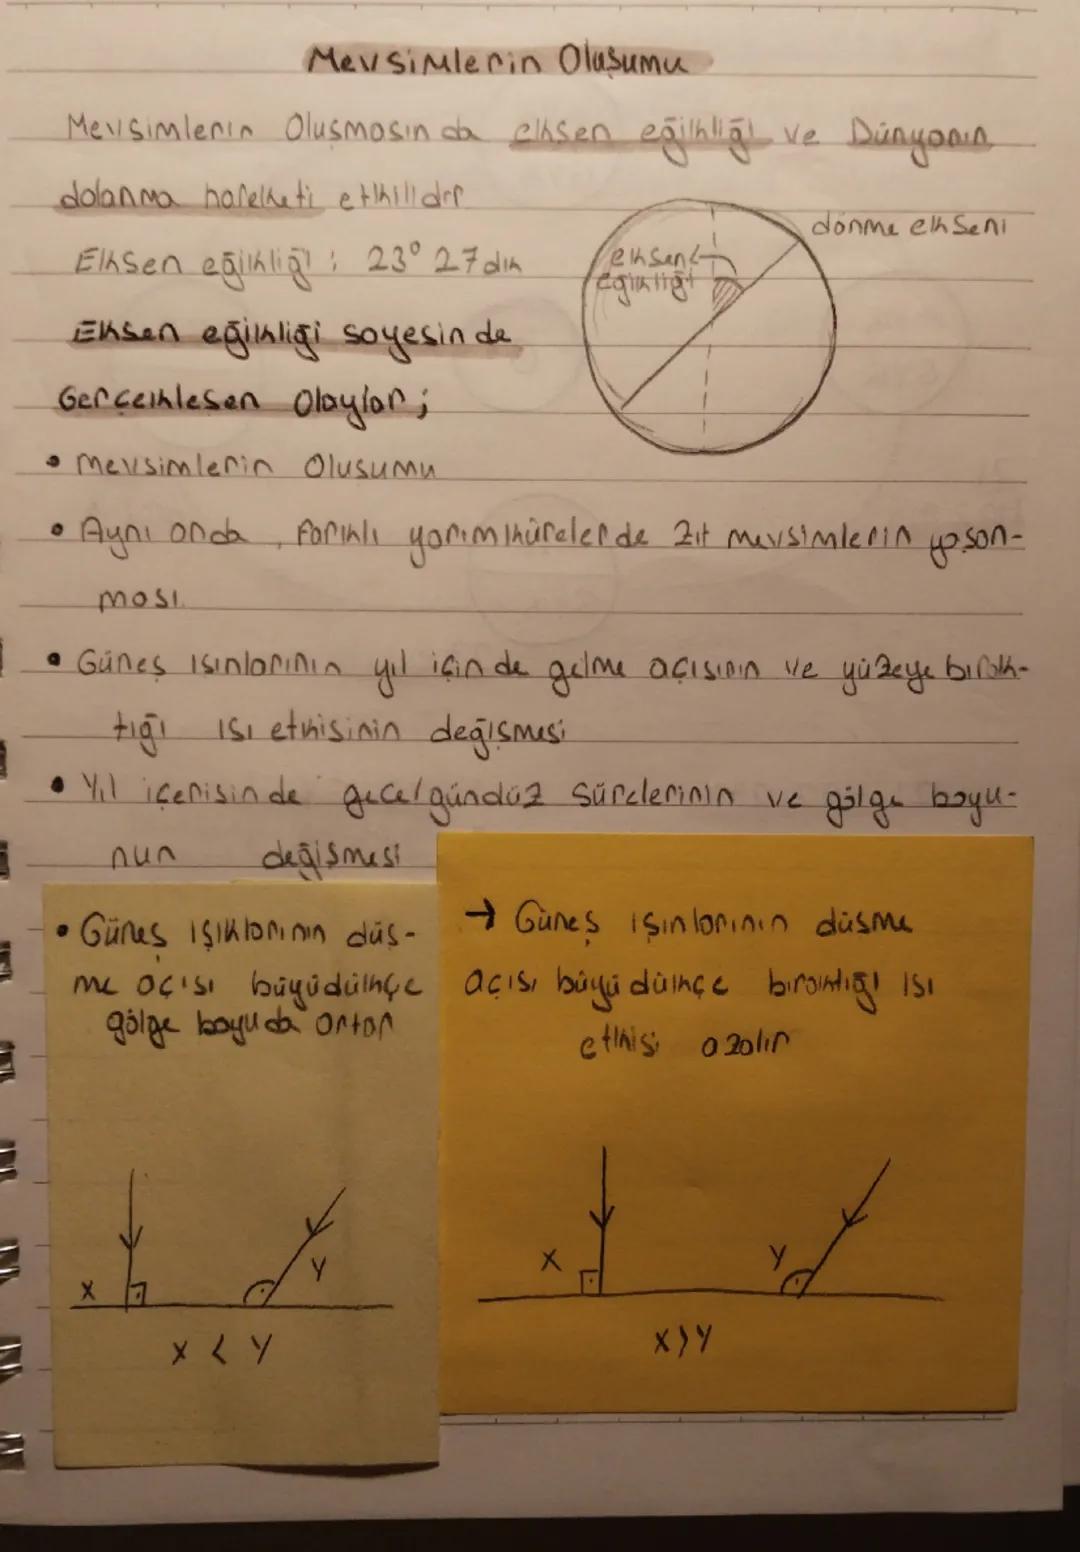 Mevsimlerin Oluşumu
Mevsimlerin Oluşmasında eksen eğikliği ve Dünyanın
dolanma hareketi etkilidir
dönme ekseni
Eksen eğikliği : 23° 27 dık
eksen
eğikliği
Eksen eğikliği sayesinde
Gerçekleşen Olaylar ;
• Mevsimlerin Olusumu
• Aynı anda , farıklı yarımkürelerde zıt mevsimlerin yaşan-
ması.
• Güneş ışınlarının yıl içinde gelme açısının ve yüzeye bırak-
tığı ısı etkisinin değişmesi
• Yıl içerisinde gece/gündüz sürelerinin ve gölge boyu-
nun değişmesi
• Güneş ışıklarının düş-
me açısı büyüdükçe
gölge boyuda artar
x
y
x < y
→ Güneş ışınlarının düşme
açısı büyüdükçe bıraktığı ısı
etkisi azalır
x
y
x > y